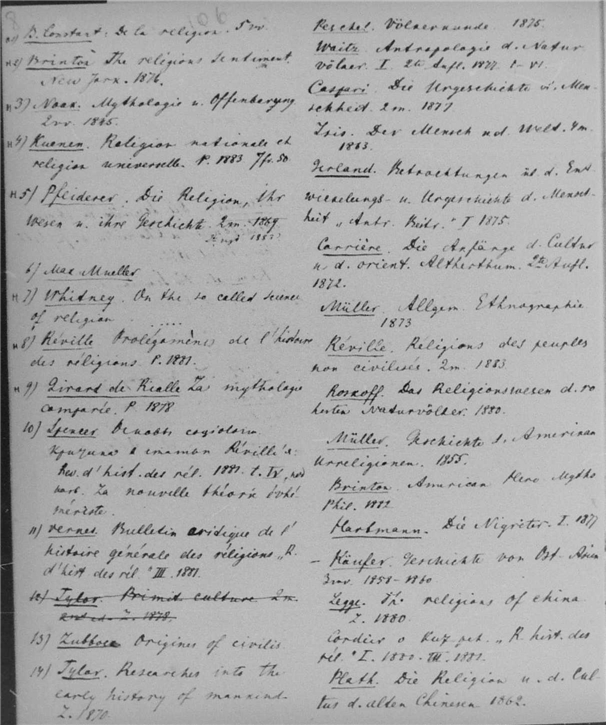 106
1) B. Constant. De la religion. 5 vv.
2) Brinton The religions sentiment.
New York. 1876.
3) Noak. Mythologie u. Offenbarung
2 vv. 1845.
4) Kuenen. Religion nationale et
religion universelle. P. 1883 7fr. 50
5) Pfleiderer. Die Religion, ihr
Wesen u. ihre Geschichte. 2 m. 1869
6) Max Mueller
7) Whitney. On the so called science
of religion
8) Réville Prolégomènes de l'histoire
des réligions. P. 1881.
9) Girard de Rialle La mythologie
comparée. P. 1878
10) Spencer Основы социологии
критика и статьи Réville в
Rev. d'hist. des rél. 1881. t. IV,
La nouvelle théorie évhé-
mériste.
11) Vernes. Bulletin critique de l'
histoire générale des réligions „R.
d'hist des rél." III. 1881.
12) Tylor. Primit. culture. 2 m.
1873.
13) Lubbock Origines of civilis
14) Tylor. Researches into the
early history of mankind.
L. 1870.
Peschel. Völkerkunde 1875.
Waitz. Antropologie d. Natur
völker. I. 2te Aufl. 1877. I–VI.
Caspari. Die Urgeschichte d. Men-
schheit. 2 m. 1877
Der Mensch und Welt. 4 m.
1863.
Gerland. Betrachtungen üb. d. Ent-
wickelungs- u. Urgeschichte d. Mensch-
heit „Antr. Beitr." I 1875
Carrière. Die Anfänge d. Cultur
u. d. orient. Altherthum. 2te Aufl.
1872.
Müller. Allgem. Ethnographie
1873
Réville. Religions des peuples
non civilisés. 2 m. 1883
Roskoff. Das Religionswesen d. ro-
hesten Naturvölker. 1880.
Müller. Geschichte d. Amerikan
Urreligionen. 1855.
Brinton. American Hero Myths
Phil. 1882
Hartmann. Die Nigritier. I. 1877
– Käufer. Geschichte von Ost-Asien
3 vv. 1858–1860
Legge. The religions of China
L. 1880.
Cordier о „R. hist. des
rél." I. 1880. III. 1881.
Plath. Die Religion u. d. Cul-
tus d. alten Chinesen 1862.